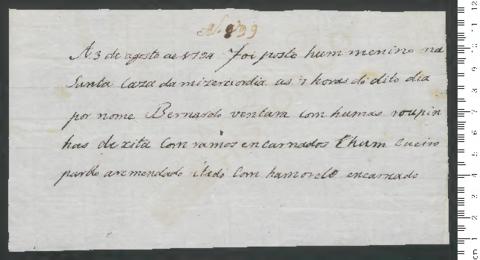 N. 939
A 3 de agosto de 1794 Foi posto hum menino na
Santa Caza da mizericordia as 7 horas do dito dia
por nome Bernardo ventura com humas roupin
has de xita com ramos encarnados E hum cueiro
pardo aremendado itado com hamorelo encarnado